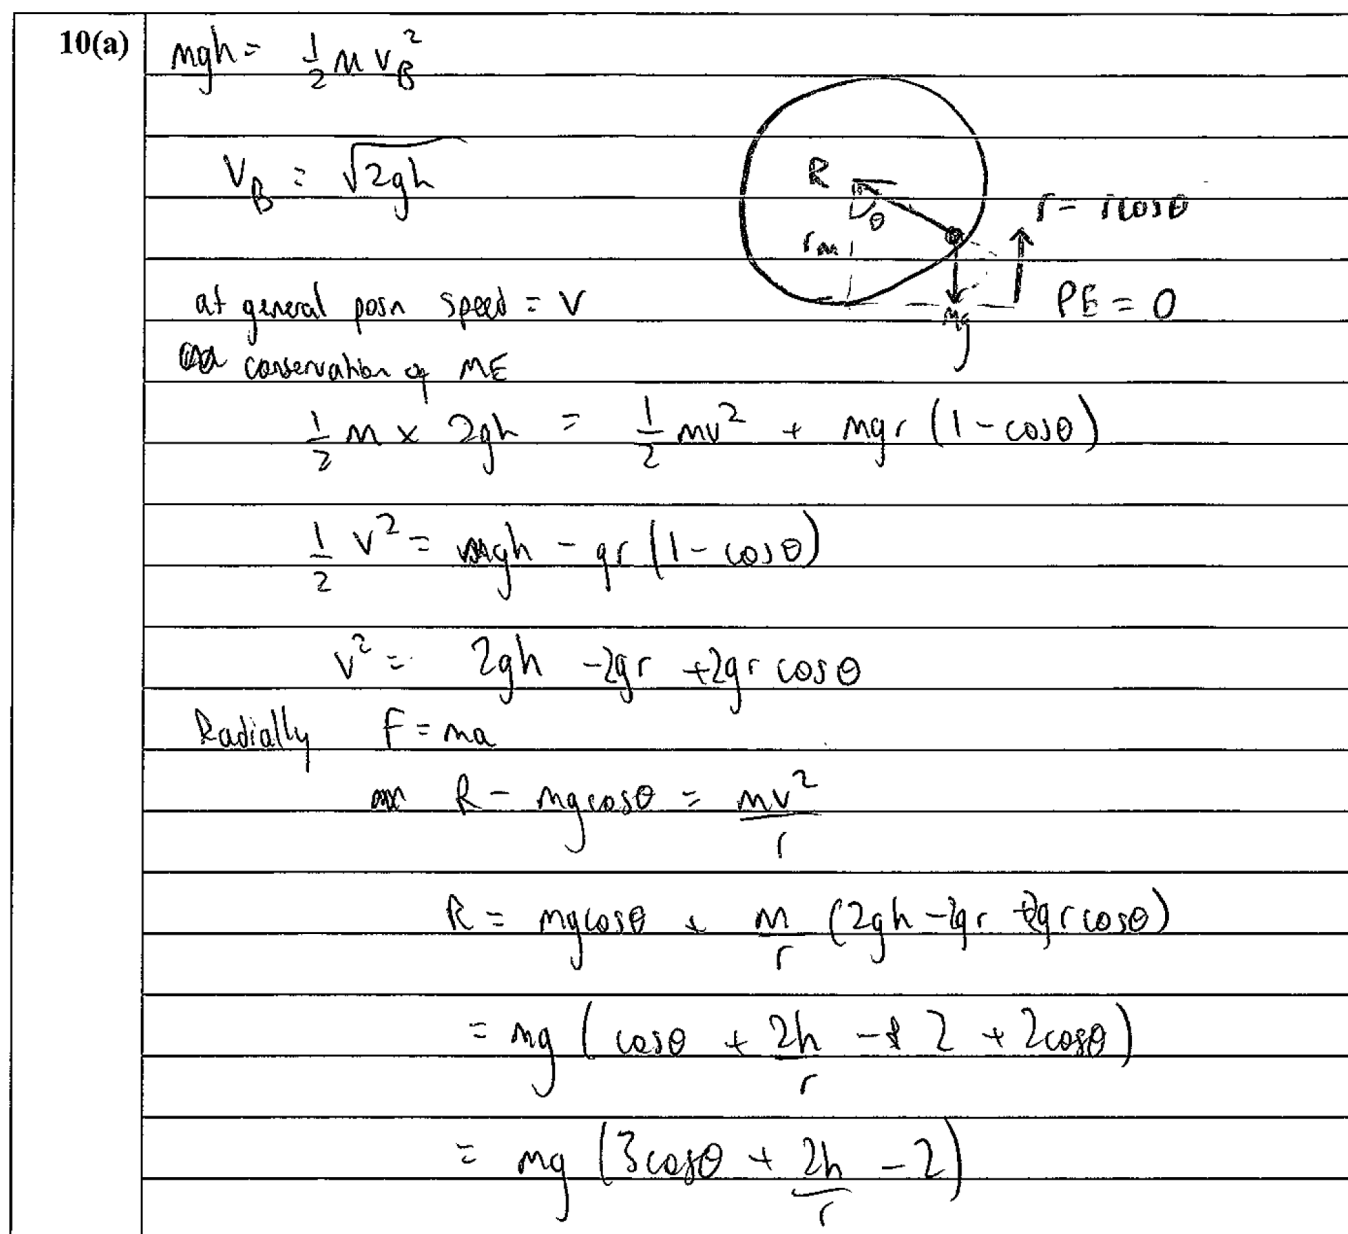 10(a)
mgh = 1/2 m v_B^2
V_B = √2gh
R
θ
r = rcosθ
r m
PE = 0
mg
at general posn speed = V
conservation of ME
1/2 m × 2gh = 1/2 mv^2 + mgr (1 - cosθ)
1/2 v^2 = gh - gr (1 - cosθ)
v^2 = 2gh - 2gr + 2gr cosθ
Radially F = ma
R - mgcosθ = mv^2/r
R = mgcosθ + m/r (2gh - 2gr + 2gr cosθ)
= mg (cosθ + 2h/r - 2 + 2cosθ)
= mg (3cosθ + 2h/r - 2)